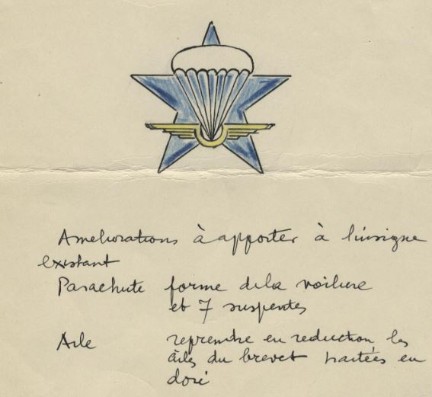 Ameliorations à apporter à l'insigne
existant
Parachute forme de la voilure
et 7 suspentes
Aile reprendre en reduction les
ailes du brevet traitées en
doré